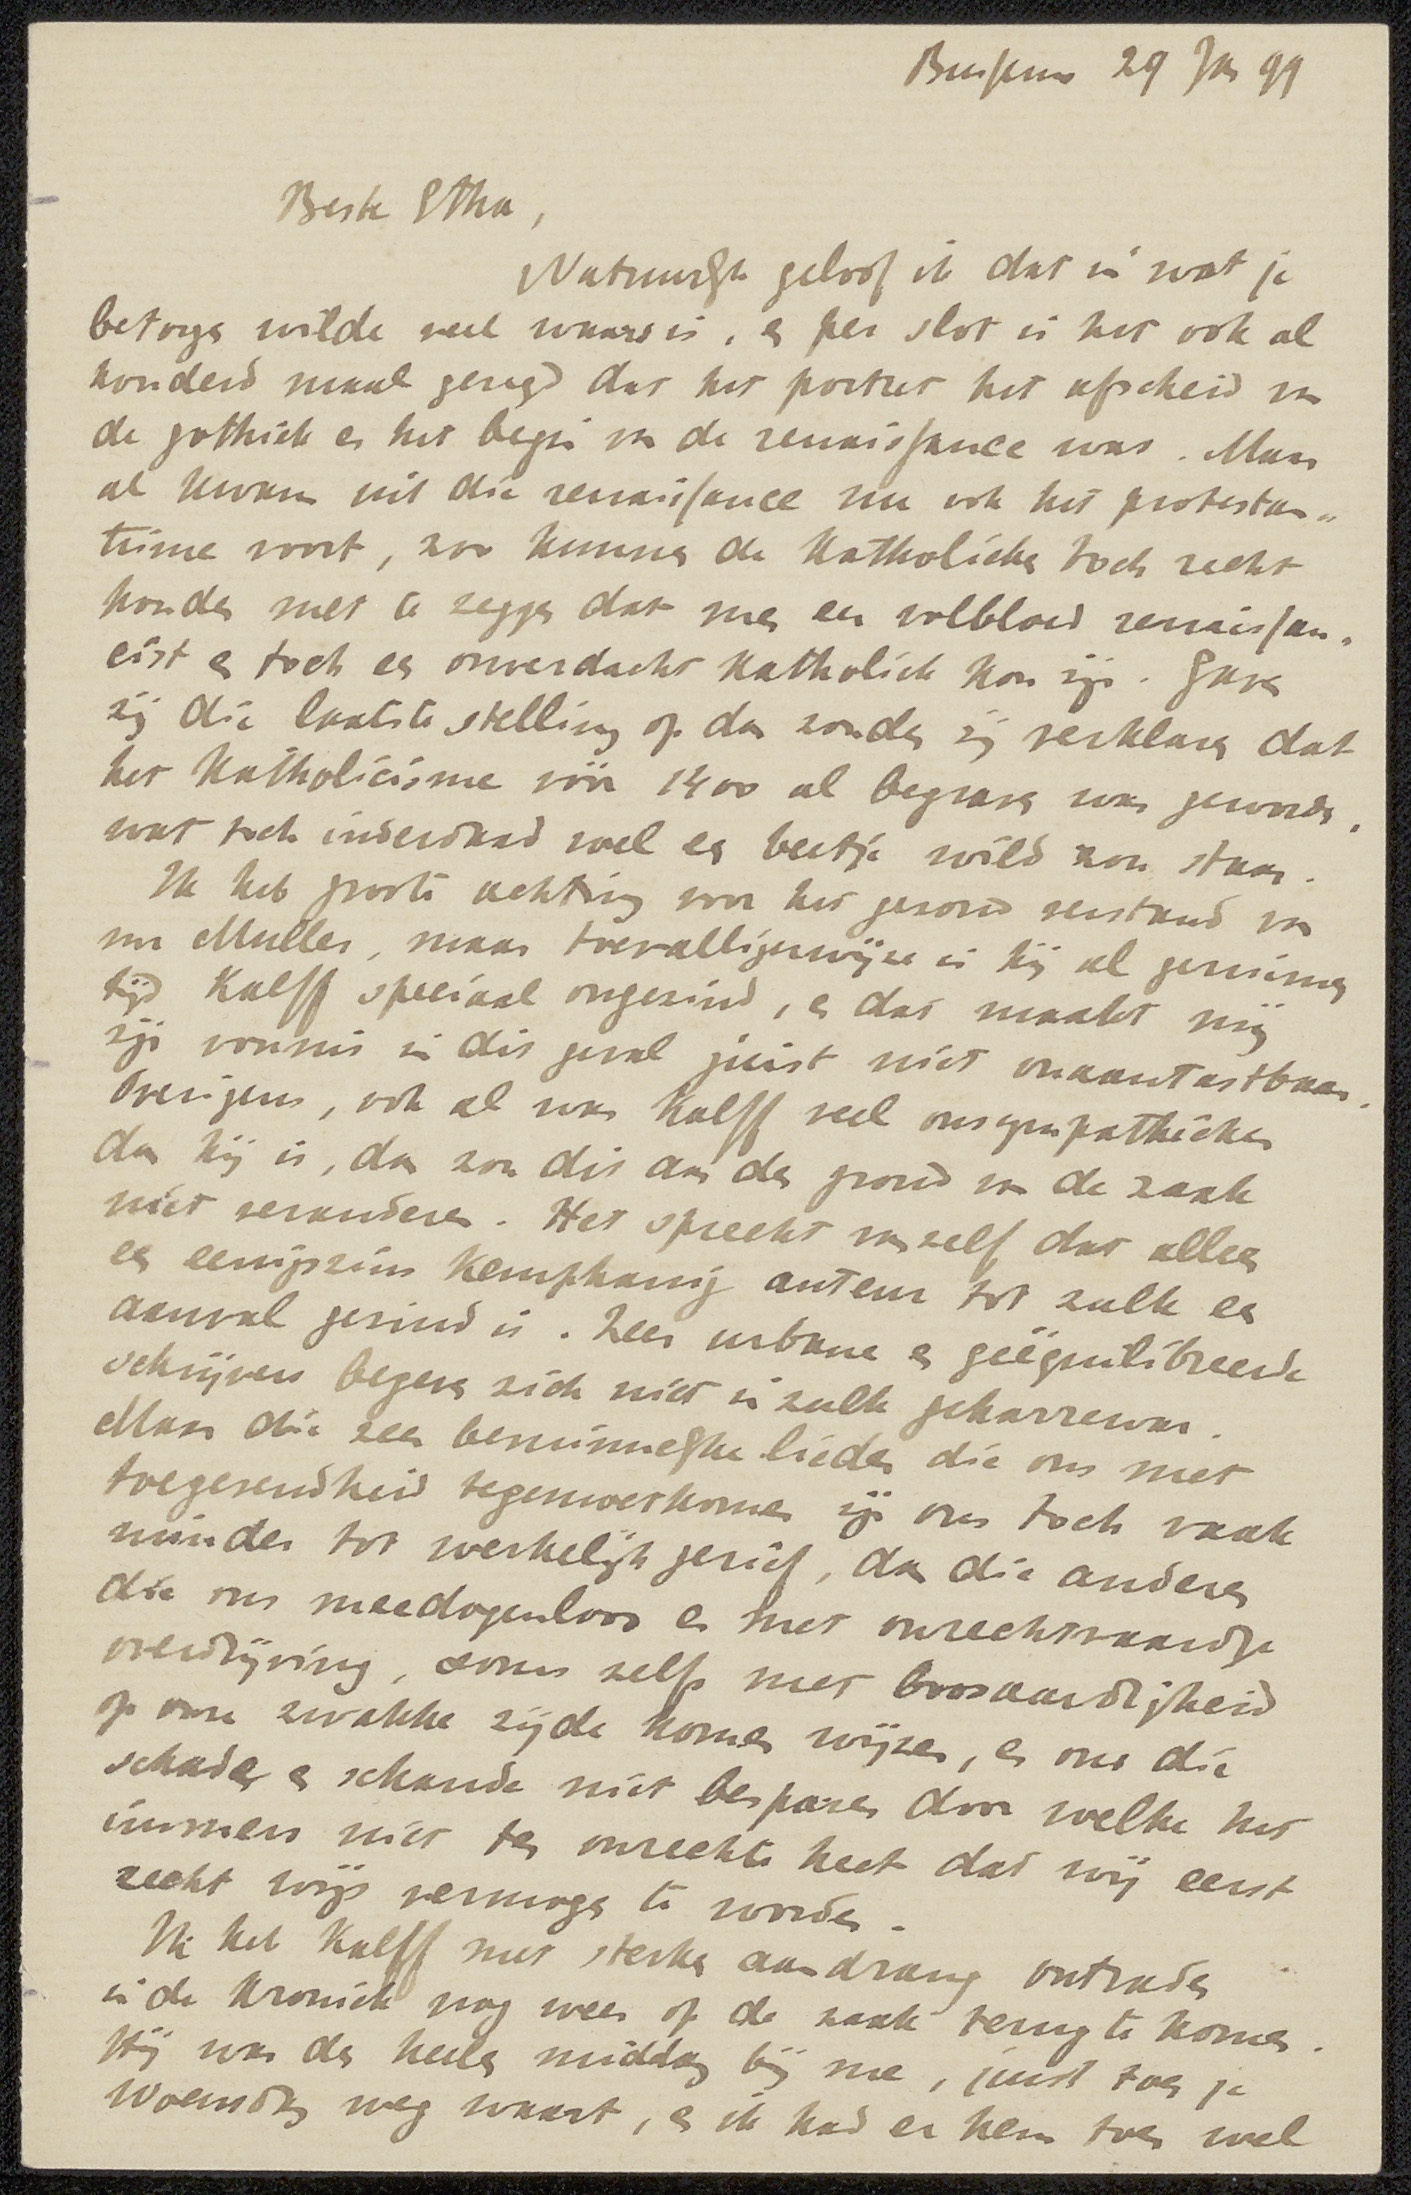 Bussum 29 Jan 99
Beste Etha,
Natuurlijk geloof ik dat in wat je
betogen wilde veel waars is, en per slot is het ook al
honderd maal gezegd dat het portret het afscheid van
de gothiek en het begin van de renaissance was. Maar
al kwam uit die renaissance nu ook het protestan„
tisme voort, zoo kunnen de Katholieken toch recht
houden met te zeggen dat men een volbloed renaissan„
cist en toch een onverdacht Katholiek kon zijn. Gaven
zij die laatste stelling op dan zouden zij verklaren dat
het Katholicisme vóór 1400 al begraven was geworden,
wat toch inderdaad wel een beetje wild zou staan.
Ik heb groote achting voor het gezond verstand van
mr Muller, maar toevalligerwijze is hij al geruimen
tijd Kalff speciaal ongezind, en dat maakt mij
zijn vonnis in dit geval juist niet onaantastbaar.
Overigens, ook al was Kalff veel onsympathieker
dan hij is, dan zou dit aan den grond van de zaak
niet veranderen. Het spreekt vanzelf dat alleen
een eenigszins kemphanig auteur tot zulk een
aanval gezind is. Zeer urbane en geëquilibreerde
schrijvers begeven zich niet in zulk geharrewar.
Maar die zeer beminnelijke lieden die ons met
toegevendheid tegemoetkomen zijn ons toch vaak
minder tot werkelijk gerief, dan die anderen
die ons meedogenloos en met onrechtvaardige
overdrijving, soms zelfs met boosaardigheid
op onze zwakke zijde komen wijzen, en ons die
schade en schande niet besparen door welke het
immers niet ten onrechte heet dat wij eerst
recht wijs vermogen te worden.
Ik heb Kalff met sterken aandrang ontraden
in de Kroniek nog weer op de zaak terug te komen.
Hij was den heelen middag bij me, juist toen je
Woensdag weg waart, en ik had er hem toen wel